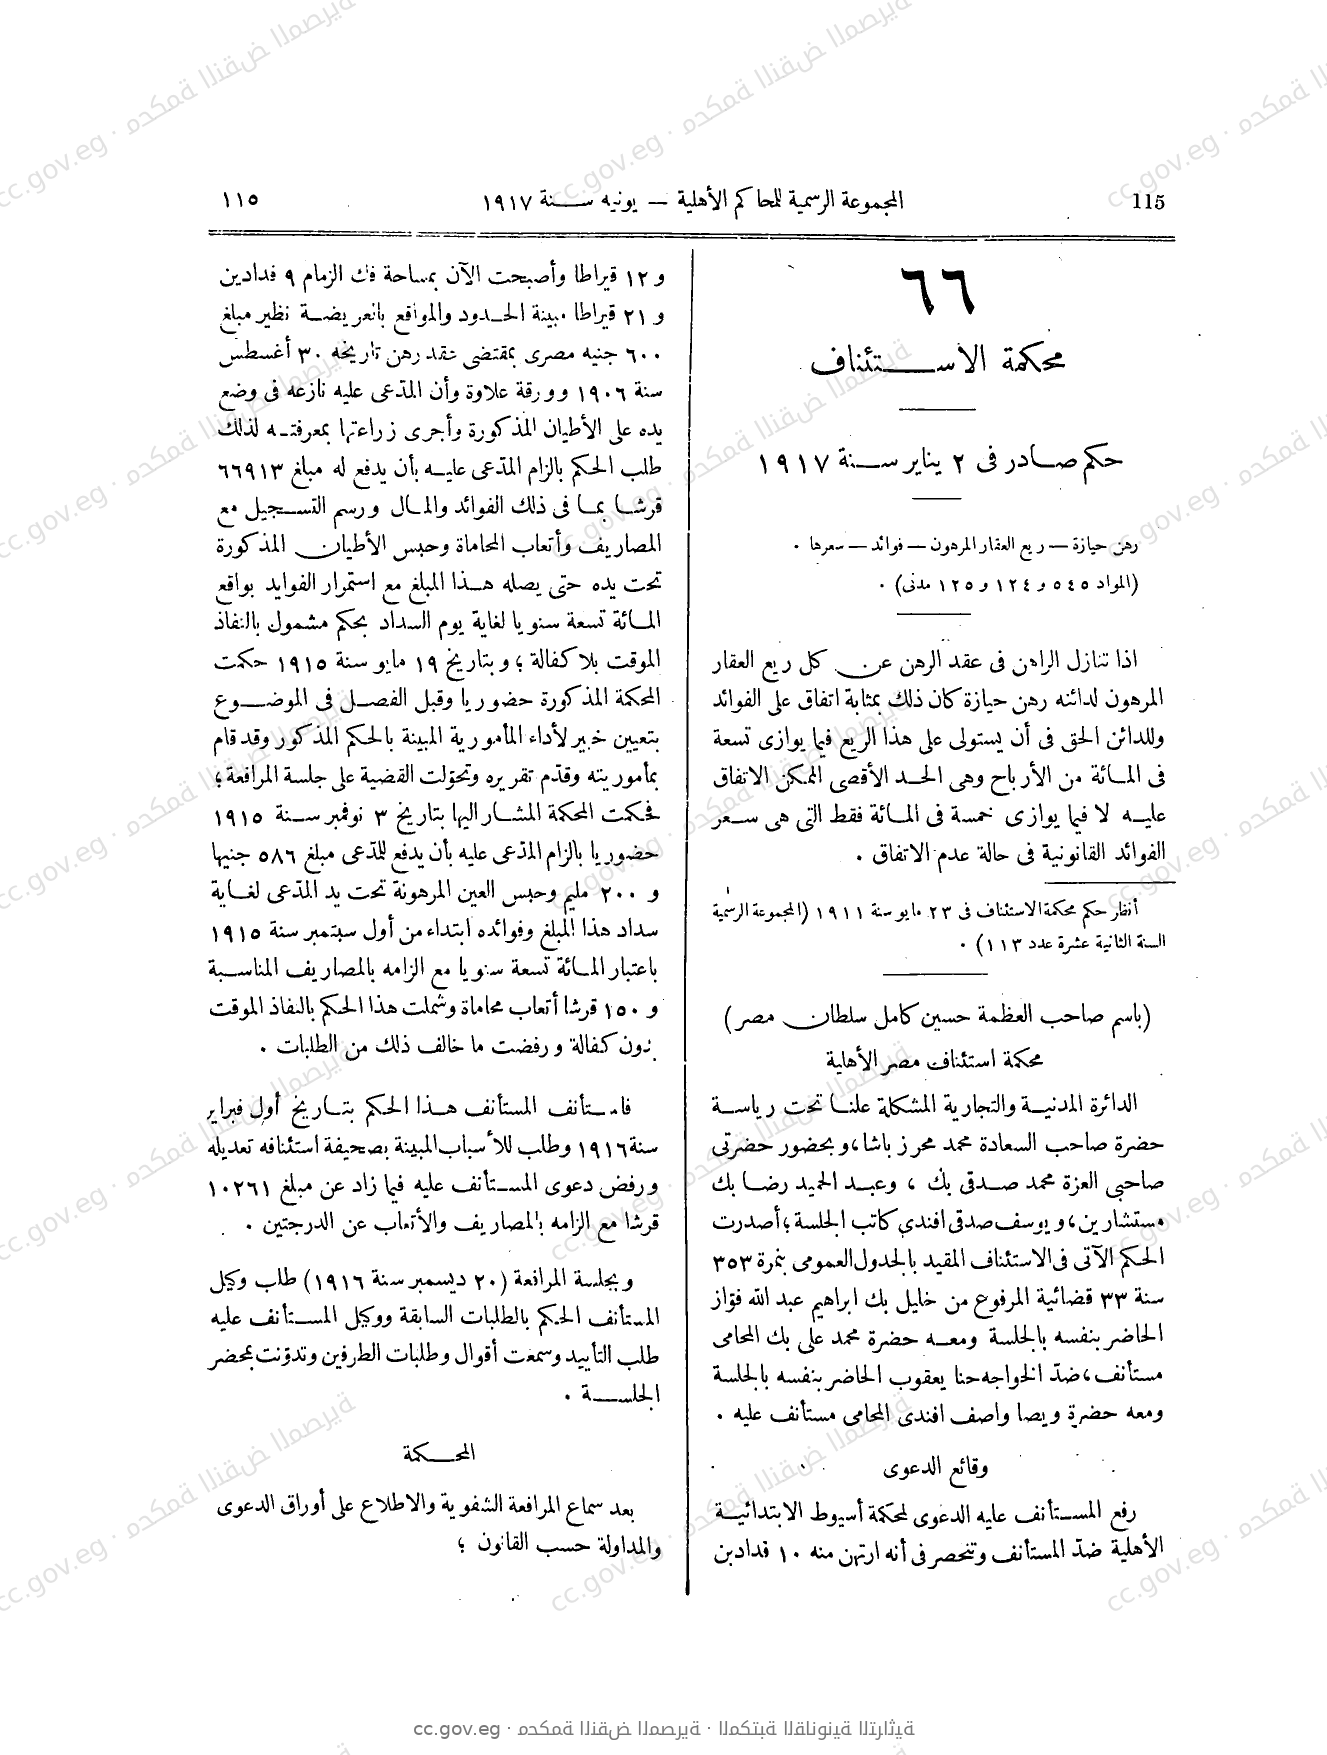 115
المجموعة الرسمية للمحاكم الأهلية — يونيه سنة ١٩١٧
١١٥
٦٦
محكمة الاستئناف
حكم صادر فى ٢ يناير سنة ١٩١٧
رهن حيازة — ريع العقار المرهون — فوائد — سعرها .
(المواد ٥٤٥ و ١٢٤ و ١٢٥ مدنى) .
اذا تنازل الراهن فى عقد الرهن عن كل ريع العقار
المرهون لدائنه رهن حيازة كان ذلك بمثابة اتفاق على الفوائد
وللدائن الحق فى أن يستولى على هذا الريع فيما يوازى تسعة
فى المائة من الأرباح وهى الحد الأقصى الممكن الاتفاق
عليه لا فيما يوازى خمسة فى المائة فقط التى هى سعر
الفوائد القانونية فى حالة عدم الاتفاق .
أنظر حكم محكمة الاستئناف فى ٢٣ مايو سنة ١٩١١ (المجموعة الرسمية
السنة الثانية عشرة عدد ١١٣) .
(باسم صاحب العظمة حسين كامل سلطان مصر)
محكمة استئناف مصر الأهلية
الدائرة المدنية والتجارية المشكلة علنا تحت رياسة
حضرة صاحب السعادة محمد محرز باشا، وبحضور حضرتى
صاحبى العزة محمد صدقى بك ، وعبد الحميد رضا بك
مستشارين، ويوسف صدقى افندى كاتب الجلسة؛ أصدرت
الحكم الآتى فى الاستئناف المقيد بالجدول العمومى بنمرة ٣٥٣
سنة ٣٣ قضائية المرفوع من خليل بك ابراهيم عبد الله فوّاز
الحاضر بنفسه بالجلسة ومعه حضرة محمد على بك المحامى
مستأنف، ضدّ الخواجه حنا يعقوب الحاضر بنفسه بالجلسة
ومعه حضرة ويصا واصف افندى المحامى مستأنف عليه .
وقائع الدعوى
رفع المستأنف عليه الدعوى لمحكمة أسيوط الابتدائية
الأهلية ضدّ المستأنف وتنحصر فى أنه ارتهن منه ١٠ فدادين
و ١٢ قيراطا وأصبحت الآن بمساحة فك الزمام ٩ فدادين
و ٢١ قيراطا مبينة الحدود والمواقع بالعريضة نظير مبلغ
٦٠٠ جنيه مصرى بمقتضى عقد رهن تاريخه ٣٠ أغسطس
سنة ١٩٠٦ وورقة علاوة وأن المدّعى عليه نازعه فى وضع
يده على الأطيان المذكورة وأجرى زراعتها بمعرفته لذلك
طلب الحكم بالزام المدّعى عليه بأن يدفع له مبلغ ٦٦٩١٣
قرشا بما فى ذلك الفوائد والمال ورسم التسجيل مع
المصاريف وأتعاب المحاماة وحبس الأطيان المذكورة
تحت يده حتى يصله هذا المبلغ مع استمرار الفوايد بواقع
المائة تسعة سنويا لغاية يوم السداد بحكم مشمول بالنفاذ
الموقت بلا كفالة ؛ وبتاريخ ١٩ مايو سنة ١٩١٥ حكمت
المحكمة المذكورة حضوريا وقبل الفصل فى الموضوع
بتعيين خبير لأداء المأمورية المبينة بالحكم المذكور وقد قام
بمأموريته وقدّم تقريره وتحوّلت القضية على جلسة المرافعة؛
فحكمت المحكمة المشار اليها بتاريخ ٣ نوفمبر سنة ١٩١٥
حضوريا بالزام المدّعى عليه بأن يدفع للمدّعى مبلغ ٥٨٦ جنيها
و ٢٠٠ مليم وحبس العين المرهونة تحت يد المدّعى لغاية
سداد هذا المبلغ وفوائده ابتداء من أول سبتمبر سنة ١٩١٥
باعتبار المائة تسعة سنويا مع الزامه بالمصاريف المناسبة
و ١٥٠ قرشا أتعاب محاماة وشملت هذا الحكم بالنفاذ الموقت
بدون كفالة ورفضت ما خالف ذلك من الطلبات .
فاستأنف المستأنف هذا الحكم بتاريخ أول فبراير
سنة ١٩١٦ وطلب للأسباب المبينة بصحيفة استئنافه تعديله
ورفض دعوى المستأنف عليه فيما زاد عن مبلغ ١٠٢٦١
قرشا مع الزامه بالمصاريف والأتعاب عن الدرجتين .
وبجلسة المرافعة (٢٠ ديسمبر سنة ١٩١٦) طلب وكيل
المستأنف الحكم بالطلبات السابقة ووكيل المستأنف عليه
طلب التأييد وسمعت أقوال وطلبات الطرفين وتدوّنت بمحضر
الجلسة .
المحكمة
بعد سماع المرافعة الشفوية والاطلاع على أوراق الدعوى
والمداولة حسب القانون ؛
cc.gov.eg · محكمة النقض المصرية · المكتبة القانونية التراثية